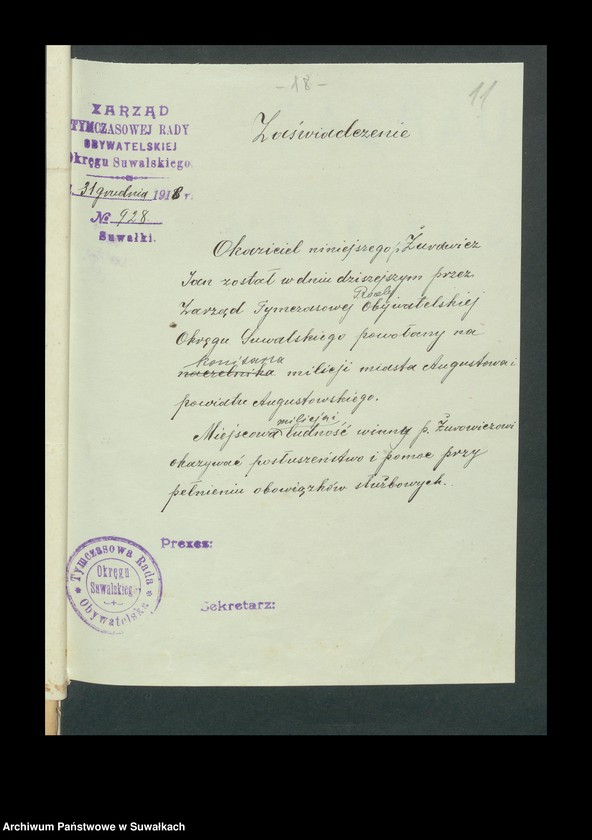 - 18 -
11
ZARZĄD
TYMCZASOWEJ RADY
OBYWATELSKIEJ
Okręgu Suwalskiego
31 grudnia 1918 r.
№ 928
Suwałki.
Zaświadczenie
Okaziciel niniejszego p. Żurowicz
Jan został w dniu dzisiejszym przez
Rady
Zarząd Tymczasowej Obywatelskiej
Okręgu Suwalskiego powołany na
komisarza
naczelnika milicji miasta Augustowa i
powiatu Augustowskiego.
milicja i
Miejscowa ludność winny p. Żurowiczowi
okazywać posłuszeństwo i pomoc przy
pełnieniu obowiązków służbowych.
Prezes:
Sekretarz:
Tymczasowa Rada
Obywatelska
Okręgu
Suwalskiego
Archiwum Państwowe w Suwałkach